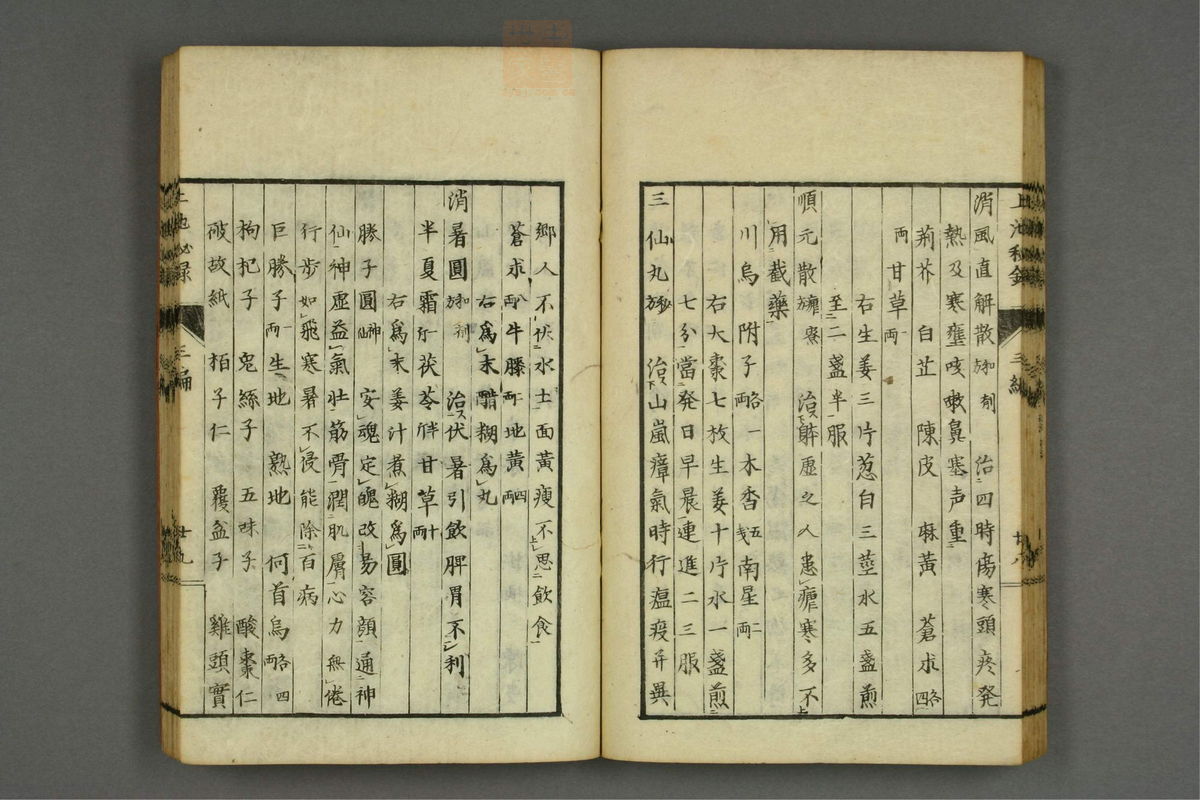 消風直解散 和剤 治四時傷寒頭疼発
熱及寒壅咳嗽鼻塞声重
荊芥 白芷 陳皮 麻黄 蒼朮 各四
両 甘草 一両
右生姜三片葱白三莖水五盞煎
至二盞半服
順元散 瘧寮 治躰虚之人患瘧寒多不
用截藥
川烏 附子 各一両 木香 五戔 南星 二両
右大棗七枚生姜十片水一盞煎
七分當発日早晨連進二三服
三仙丸 秘方 治山嵐瘴氣時行瘟疫并異
鄉人不伏水土面黃瘦不思飲食
蒼朮 八両 牛膝 二両 地黃 四両
右為末醋糊為丸
消暑圓 和剤 治伏暑引飲脾胃不利
半夏霜 斤 茯苓 半斤 甘草 十両
右為末姜汁煮糊為圓
勝子圓 神仙 安魂定魄改易容顔通神
仙神虛益氣壮筋骨潤肌膚心力無倦
行步如飛寒暑不侵能除百病
巨勝子 一両 生地 熟地 何首烏 各四両
枸杞子 兔絲子 五味子 酸棗仁
破故紙 栢子仁 覆盆子 雞頭實
三編
廿八
三編
廿九